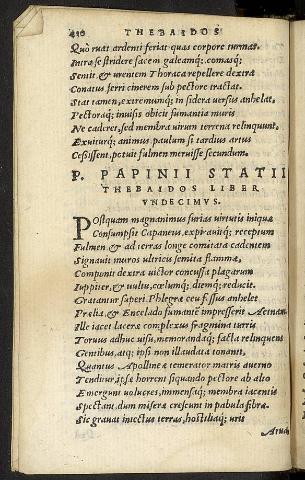 410 THEBAIDOS
Quò ruat ardenti feriat quas corpore turmas.
Intra se stridere facem galeamq;, comasq;
Sentit, & urentem Thoraca repellere dextra
Conatus ferri cinerem sub pectore tractat.
Stat tamen, extremumq; in sidera versus anhelat,
Pectoraq; inuisis obicit fumantia muris
Ne caderet, sed membra uirum terrena relinquunt,
Exuiturq; animus paulum si tardius artus
Cessissent, potuit fulmen meruisse secundum.
P. PAPINII STATII
THEBAIDOS LIBER
VNDECIMVS.
Postquam magnanimus furias uirtutis iniquæ
Consumpsit Capaneus, expirauitq; receptum
Fulmen & ad terras longe comitata cadentem
Signauit muros ultricis semita flammæ,
Componit dextra uictor concussa plagarum
Iuppiter, & uultu, cœlumq; diemq; reducit.
Gratantur superi. Phlegræ ceu fessus anhelet
Prælia, & Encelado fumantē impresserit Aetnam.
Ille iacet lacerae complexus fragmina turris
Toruus adhuc uisu, memorandaq; facta relinquens
Gentibus, atq; ipsi non illaudata tonanti.
Quantus Apollineæ temerator matris auerno
Tenditur, ipsæ horrent siquando pectore ab alto
Emergunt uolucres, immensaq; membra iacentis
Spectant, dum miseræ crescunt in pabula fibræ.
Sic grauat iniectus terras, hostiliaq; urit
Aruaq;